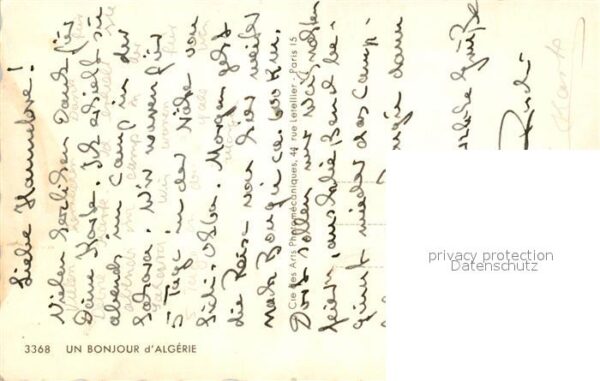 Liebe Hannelore!
Vielen herzlichen Dank für
Deine Karte. Ich erhielt sie
abends im Camp in der
Sahara. Wir waren für
5 Tage in der Nähe von
Sidi-Okba. Morgen geht
die Reise von hier weiter
nach Bougie ca. 600 km.
Dort sollen wir Weihnachten
feiern, anschließend be-
ginnt wieder das Camp-
dann
Grüße
Cie des Arts Photomécaniques, 44 rue Letellier - Paris 15
3368 UN BONJOUR d'ALGÉRIE
privacy protection
Datenschutz